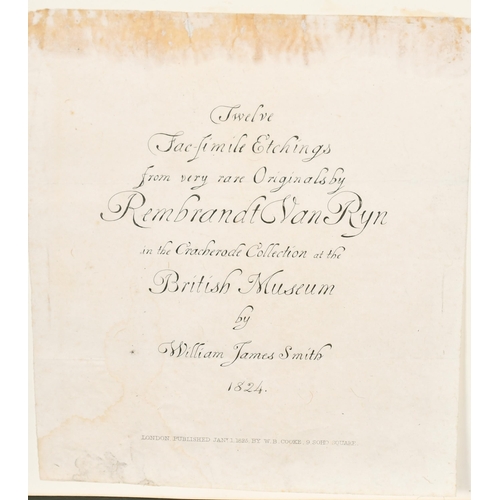 Twelve
Fac-simile Etchings
from very rare Originals by
Rembrandt Van Ryn
in the Cracherode Collection at the
British Museum
by
William James Smith
1824.
LONDON PUBLISHED JANY. 1, BY W. B. COOKE, 9, SOHO SQUARE